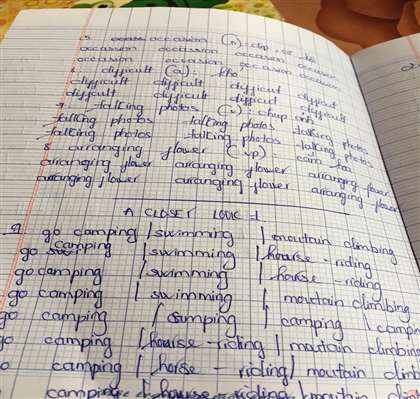 5 occasion (n): dịp, sự kiện
occassion occassion occassion occassion
occassion occassion occassion occassion
6 difficult (a): khó
difficult difficult difficut difficut
difficult difficult difficult difficult
7 talking photos (v): chụp ảnh
talking photos talking photos talking photos
talking photos talking photos talking photos
8 arranging flower (vp): cắm hoa
arranging flower arranging flower arranging flower
arranging flower arranging flower arranging flower
A CLOSER LOOK-1
go camping / swimming / moutain climbing
go camping / swimming / hourse-riding
go camping / swimming / hourse-riding
go camping / swimming / moutain climbing
go camping / camping / camping / camp
go camping / hourse-riding / moutain climbing
camping / horse-riding / moutain climb
camping / hourse-riding / moutain clim